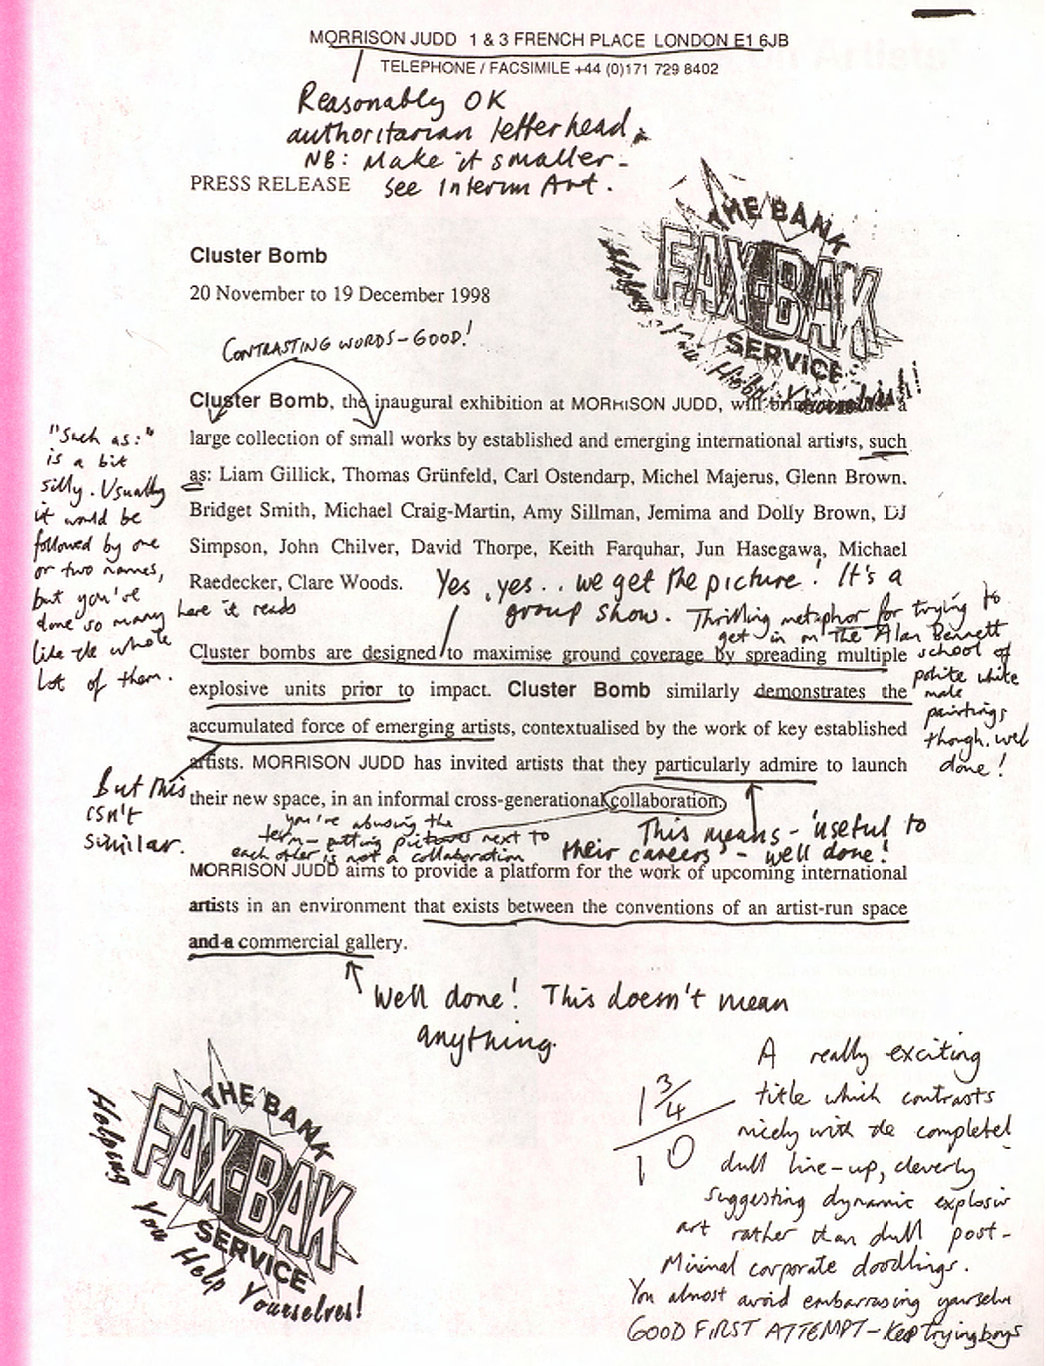 MORRISON JUDD 1 & 3 FRENCH PLACE LONDON E1 6JB
TELEPHONE / FACSIMILE +44 (0)171 729 8402
Reasonably OK
authoritarian letterhead.
NB: Make it smaller -
see Interim Art.
PRESS RELEASE
THE BANK
FAX-BAK
SERVICE
Helping You Help Yourselves!
Cluster Bomb
20 November to 19 December 1998
CONTRASTING WORDS - GOOD!
Cluster Bomb, the inaugural exhibition at MORRISON JUDD, will a
large collection of small works by established and emerging international artists, such
as: Liam Gillick, Thomas Grünfeld, Carl Ostendarp, Michel Majerus, Glenn Brown,
Bridget Smith, Michael Craig-Martin, Amy Sillman, Jemima and Dolly Brown, DJ
Simpson, John Chilver, David Thorpe, Keith Farquhar, Jun Hasegawa, Michael
Raedecker, Clare Woods.
"Such as:"
is a bit
silly. Usually
it would be
followed by one
or two names,
but you've
done so many here it reads
like the whole
lot of them.
Yes, yes.. we get the picture! It's a
group show. Thrilling metaphor for trying to
get in on The Alan Bennett
school of
polite white
male
paintings
though. well
done!
Cluster bombs are designed to maximise ground coverage by spreading multiple
explosive units prior to impact. Cluster Bomb similarly demonstrates the
accumulated force of emerging artists, contextualised by the work of key established
artists. MORRISON JUDD has invited artists that they particularly admire to launch
their new space, in an informal cross-generational collaboration.
But this
isn't
similar.
you're abusing the
term - putting pictures next to
each other is not a collaboration
This means - 'useful to
their careers' - well done!
MORRISON JUDD aims to provide a platform for the work of upcoming international
artists in an environment that exists between the conventions of an artist-run space
and a commercial gallery.
Well done! This doesn't mean
anything.
THE BANK
FAX-BAK
SERVICE
Helping You Help Yourselves!
1 3/4
10
A really exciting
title which contrasts
nicely with the completel
dull line-up, cleverly
suggesting dynamic explosiv
art rather than dull post-
Minimal corporate doodlings.
You almost avoid embarrassing yourselve
GOOD FIRST ATTEMPT - Keep trying boys